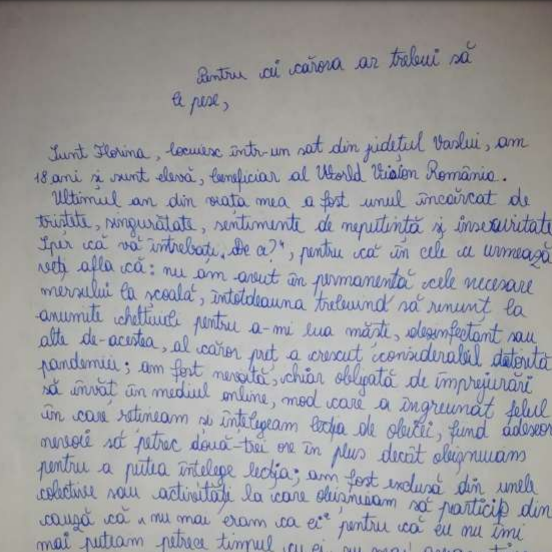 Pentru cei cărora ar trebui să
le pese,
Sunt Florina, locuiesc într-un sat din județul Vaslui, am
18 ani și sunt elevă, beneficiar al World Vision România.
Ultimul an din viața mea a fost unul încărcat de
tristețe, singurătate, sentimente de neputință și insecuritate
Sper că vă întrebați „De ce?", pentru că în cele ce urmează
veți afla că: nu am avut în permanență cele necesare
mersului la școală, întotdeauna trebuind să renunț la
anumite cheltuieli pentru a-mi lua măști, dezinfectant sau
alte de-acestea, al căror preț a crescut considerabil datorită
pandemiei; am fost nevoită, chiar obligată de împrejurări
să învăț în mediul online, mod care a îngreunat felul
în care rețineam și înțelegeam lecția de obicei, fiind adeseori
nevoie să petrec două-trei ore în plus decât obișnuiam
pentru a putea înțelege lecția; am fost exclusă din unele
colective sau activități la care obișnuiam să particip din
cauză că „nu mai eram ca ei" pentru că eu nu îmi
mai puteam petrece timpul cu ei, nu mai